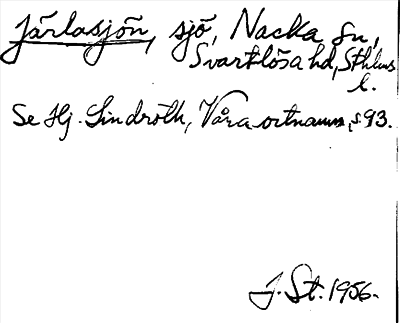 Järlasjön, sjö, Nacka sn,
Svartlösa hd, Sthlms
l.
Se Hj. Lindroth, Våra ortnamn, s. 93.
J. St. 1956.